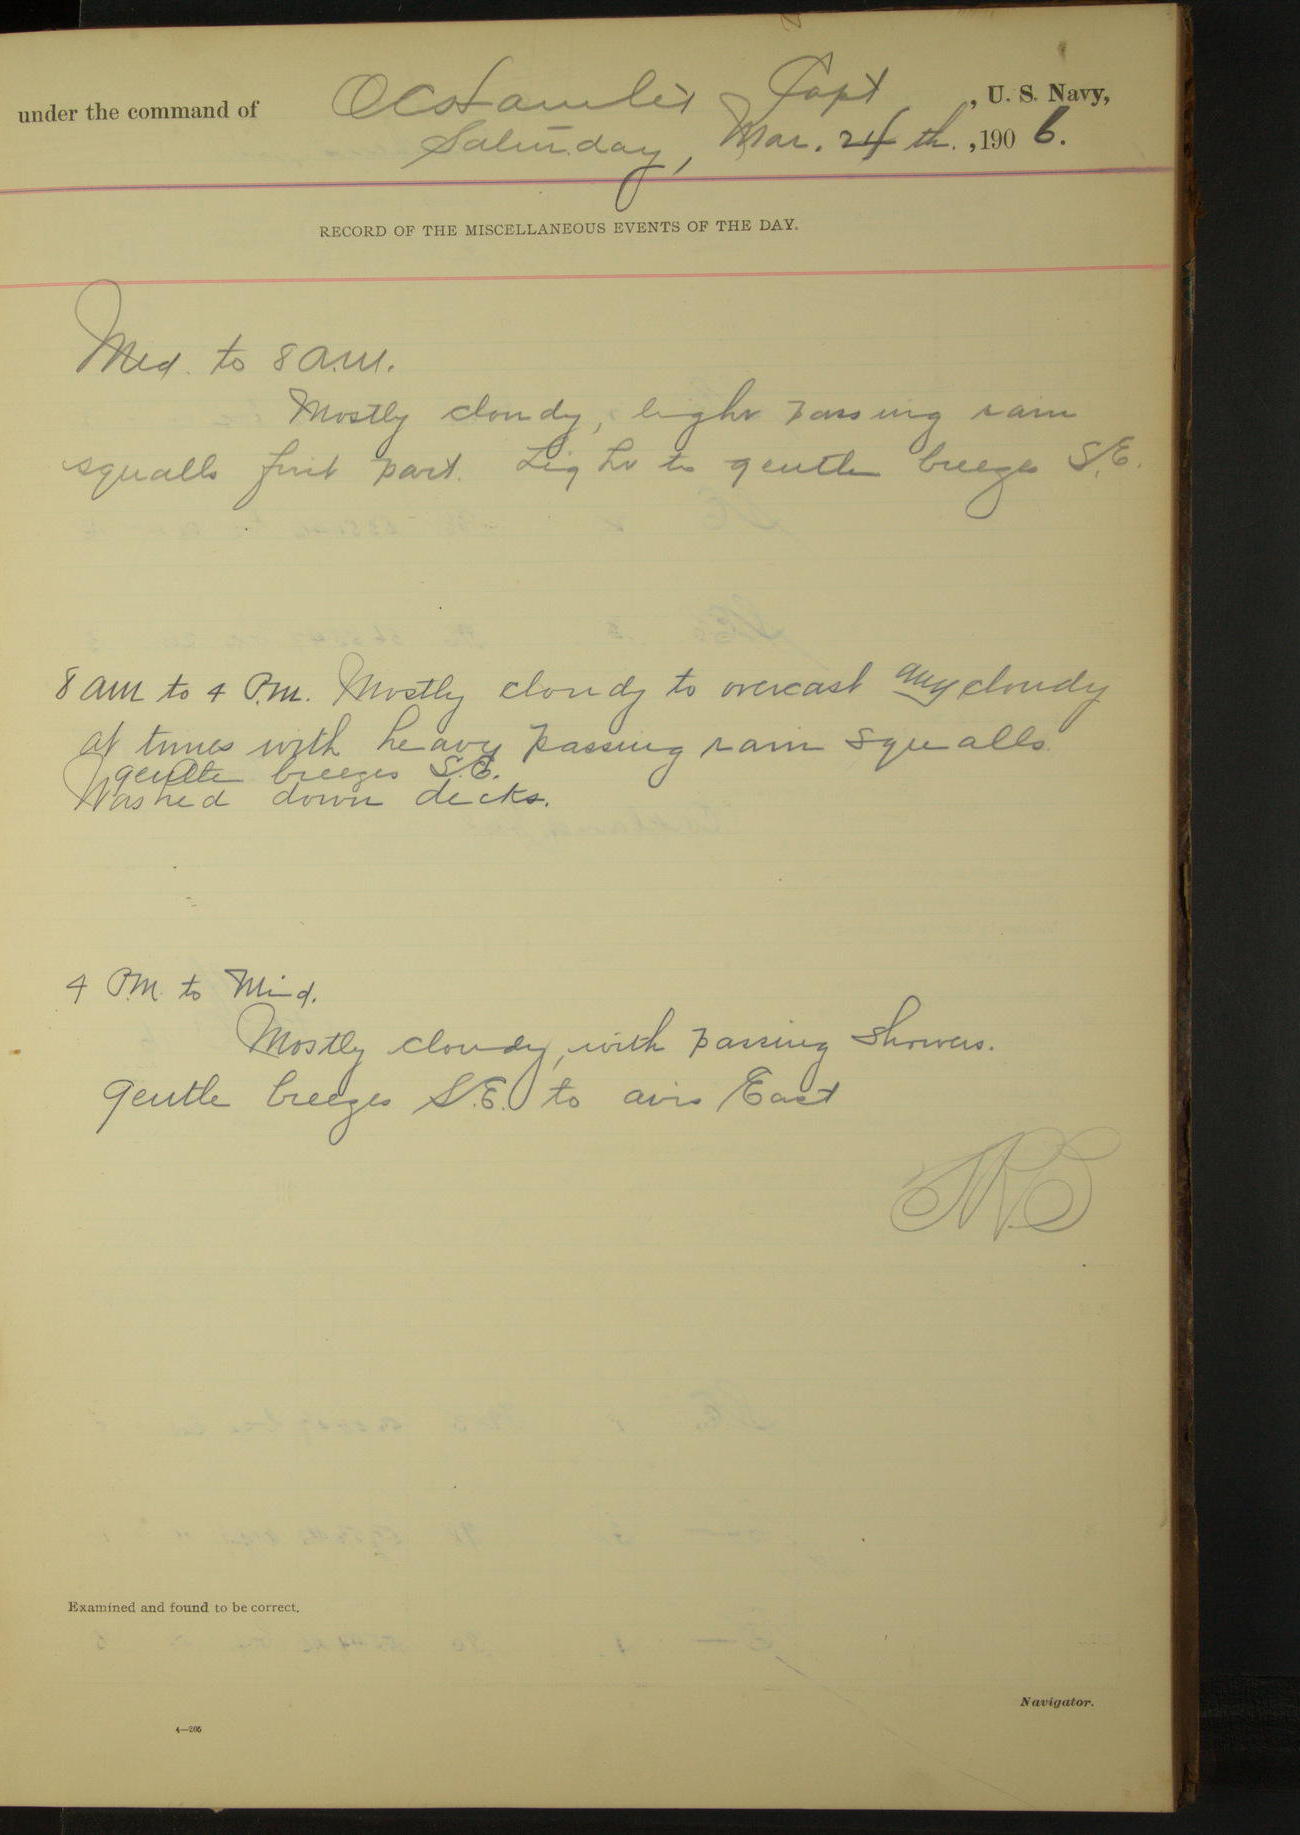 under the command of Capt , U. S. Navy,
Saturday, Mar. 24th. , 190 6.
RECORD OF THE MISCELLANEOUS EVENTS OF THE DAY.
Mid. to 8 a.m.
Mostly cloudy, light passing rain
squalls first part. Light to gentle breezes S.E.
8 am to 4 P.m. Mostly cloudy to overcast cloudy
at times with heavy passing rain squalls.
gentle breezes S.E.
Washed down decks.
4 P.M. to Mind.
Mostly cloudy, with passing showers.
gentle breezes S.E. to East
Examined and found to be correct.
Navigator.
4—205